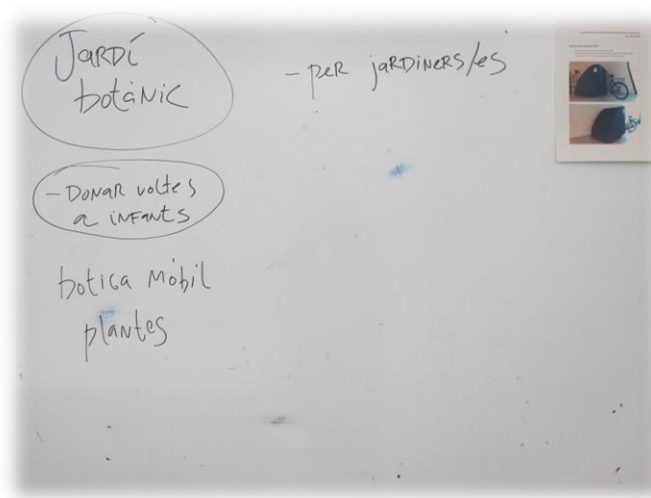 Jardí
botànic
- per jardiners/es
- Donar voltes
a infants
botica mòbil
plantes